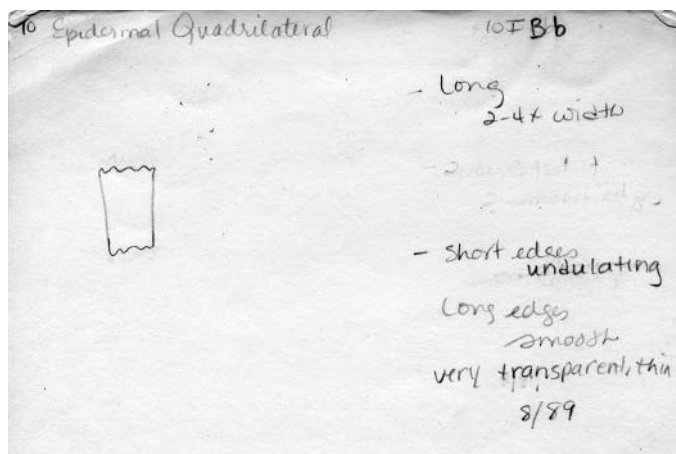 10 Epidermal Quadrilateral
10 I B-b
- Long
2-4x width
- Short edges
undulating
Long edges
smooth
very transparent, thin
8/89